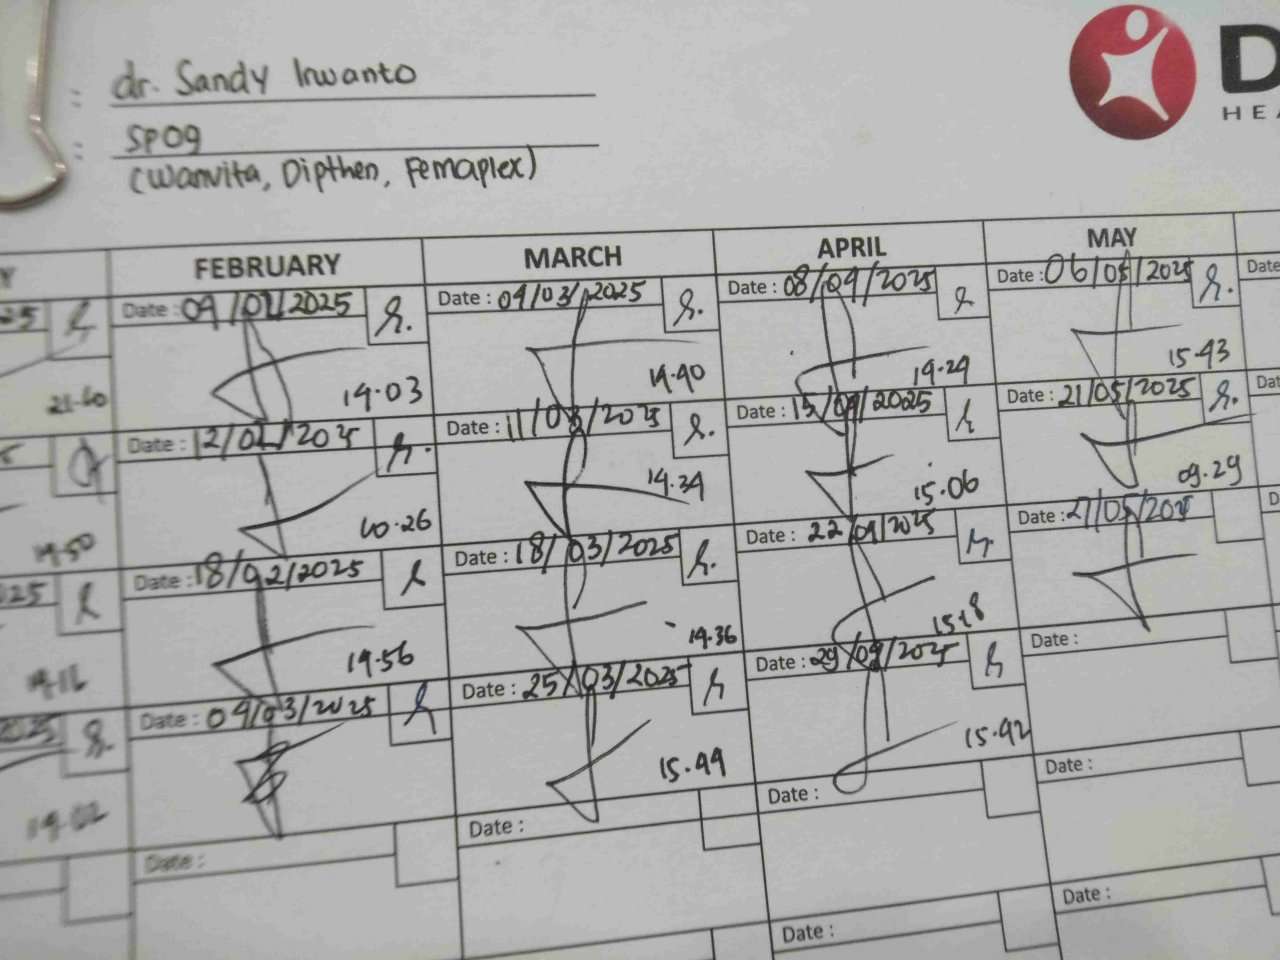 : dr. Sandy Irwanto
: SPOG
(Wanvita, Dipthen, Femaplex)
D
HEA
Y FEBRUARY MARCH APRIL MAY
25 Date : 04/02/2025 Date : 04/03/2025 Date : 08/04/2025 Date : 06/05/2025 Date
21.10 14.03 14.40 14.24 15.43
Date : 12/02/2025 Date : 11/03/2025 Date : 15/04/2025 Date : 21/05/2025 Dat
14.50 10.26 14.34 15.06 09.29
025 Date : 18/02/2025 Date : 18/03/2025 Date : 22/04/2025 Date : 27/05/202
14.16 14.56 14.36 15.18
2025 Date : 04/03/2025 Date : 25/03/2025 Date : 29/04/2025 Date :
14.02 15.44 15.42
Date : Date : Date : Date :
Date : Date :